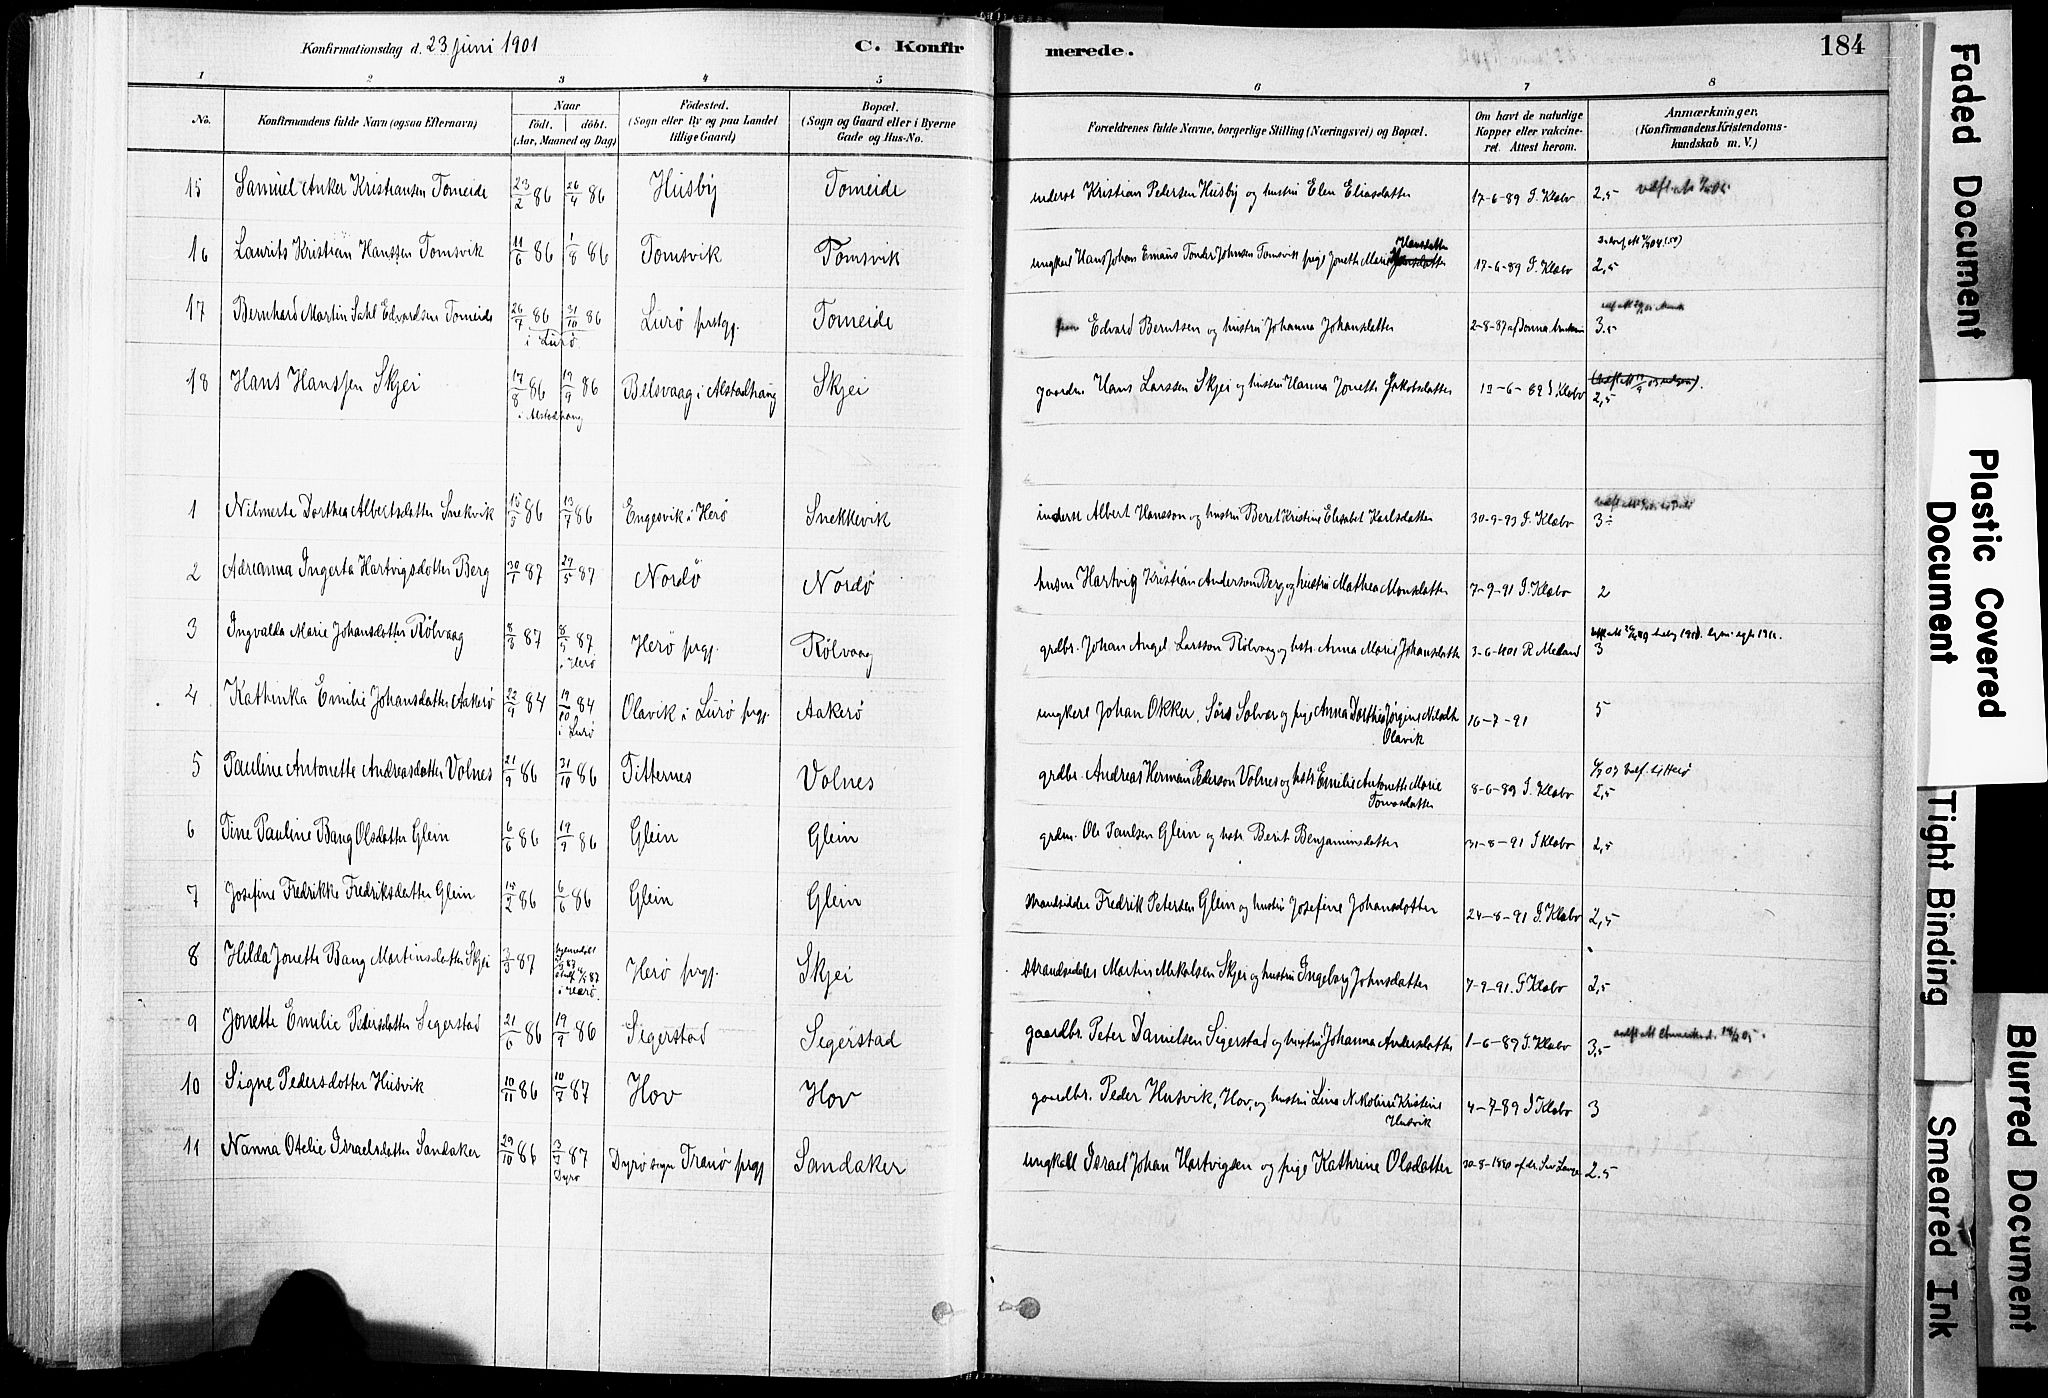 Konfirmationsdag d. 23 juni 1901
C. Konfir merede.
184
1 2 3 4 5 6 7 8
No.
Konfirmandens fulde Navn (ogsaa Efternavn)
Naar
født. døbt.
(Aar, Maaned og Dag)
Fødested.
(Sogn eller By og paa Landet
tillige Gaard)
Bopæl.
(Sogn og Gaard eller i Byerne
Gade og Hus-No.
Forældrenes fulde Navne, borgerlige Stilling (Næringsvei) og Bopæl.
Om havt de naturlige
Kopper eller vakcine-
ret. Attest herom.
Anmærkninger.
(Konfirmandens Kristendoms-
kundskab m. V.)
15 Samuel Anker Kristiansen Tomeide 23/2 86 26/4 86 Husby Tomeide inderst Kristian Pedersen Husby og hustru Elen Eliasdatter 17-6-89 I. Klæbo 2,5
16 Laurits Kristian Hanssen Tomsvik 11/6 86 1/8 86 Tomsvik Tomsvik ungkarl Hans Johan Emaus Tonder Johnsen Tomsvik pige Jonette Marie Hansdatter 17-6-89 I. Klæbo 2,5
17 Bernhard Martin Sahl Edvardsen Tomeide 26/7 86 31/10 86 i Lurø Lurø prstgj. Tomeide Edvard Berntsen og hustru Johanna Johansdatter 2-8-87 af 3.5
18 Hans Hanssen Skjei 17/8 86 19/9 86 i Alstadhaug Belsvaag i Alstadhaug Skjei gaardm. Hans Larssen Skjei og hustru Hanna Jonette Jakobsdatter 12-6-89 I Klæbo 2,5
1 Nilmerte Dorthea Albertsdatter Snekvik 15/5 86 13/7 86 Engesvik i Herø Snekkevik inderst Albert Hansson og hustru Beret Kristine Elisabet Karlsdatter 30-9-93 I. Klæbo 3÷
2 Adreanna Ingerta Hartvigsdatter Berg 30/1 87 29/5 87 Nordø Nordø husm Hartvig Kristian Anderson Berg og hustru Mathea Monsdatter 7-9-91 I. Klæbo 2
3 Ingvalda Marie Johansdatter Rølvaag 8/3 87 8/5 87 i Herø Herø prgj. Rølvaag grdbr. Johan Angel Larsson Rølvaag og hstr. Anna Marie Johansdatter 3-6-01 R. Meland 3
4 Kathinka Emilie Johansdatter Aakerø 22/9 84 19/10 84 i Lurø Olavik i Lurø prgj. Aakerø ungkarl Johan Okker, Sørs Solvær og pige Anna Dorthea Jørgine Nilsdtr Olavik 16-7-91 5
5 Pauline Antonette Andreasdatter Volnes 21/9 86 31/10 86 Titternes Volnes grdbr. Andreas Herman Pederson Volnes og hstr Emilie Antonette Marie Tomasdatter 8-6-89 I. Klæbo 2,5
6 Tine Pauline Bang Olsdatter Glein 6/6 86 19/9 86 Glein Glein grdm. Ole Paulsen Glein og hstr. Berit Benjaminsdatter 31-8-91 I Klæbo 2,5
7 Josefine Fredrikke Fredriksdatter Glein 15/2 86 6/6 86 Glein Glein strandsidder Fredrik Petersen Glein og hustru Josefine Johansdatter 24-8-91 I. Klæbo 2,5
8 Hilda Jonette Bang Martinsdatter Skjei 3/3 87 hjemmedøbt i Herø. Herø prgj. Skjei strandsidder Martin Mekalsen Skjei og hustru Ingeborg Johnsdatter 7-9-91. I Klæbo 2,5
9 Jonette Emilie Pedersdatter Segerstad 21/6 86 19/9 86 Segerstad Segerstad gaardbr. Peter Danielsen Segerstad og hustru Johanna Andersdatter 1-6-89 I. Klæbo 3,5
10 Signe Pedersdatter Husvik 10/11 86 10/7 87 Hov Hov gaardbr. Peder Husvik, Hov, og hustru Lina Nikoline Kristine Husvik 4-7-89 I Klæbo 3
11 Nanna Otelie Israelsdatter Sandaker 29/10 86 3/5 87 Dyrø Dyrø sogn Tranø prgj Sandaker ungkall Israel Johan Hartvigsen og pige Kathrine Olsdatter 30-8-1880 af 2.5
Faded Document
Plastic Covered
Document
Tight Binding
Blurred Document
Smeared Ink